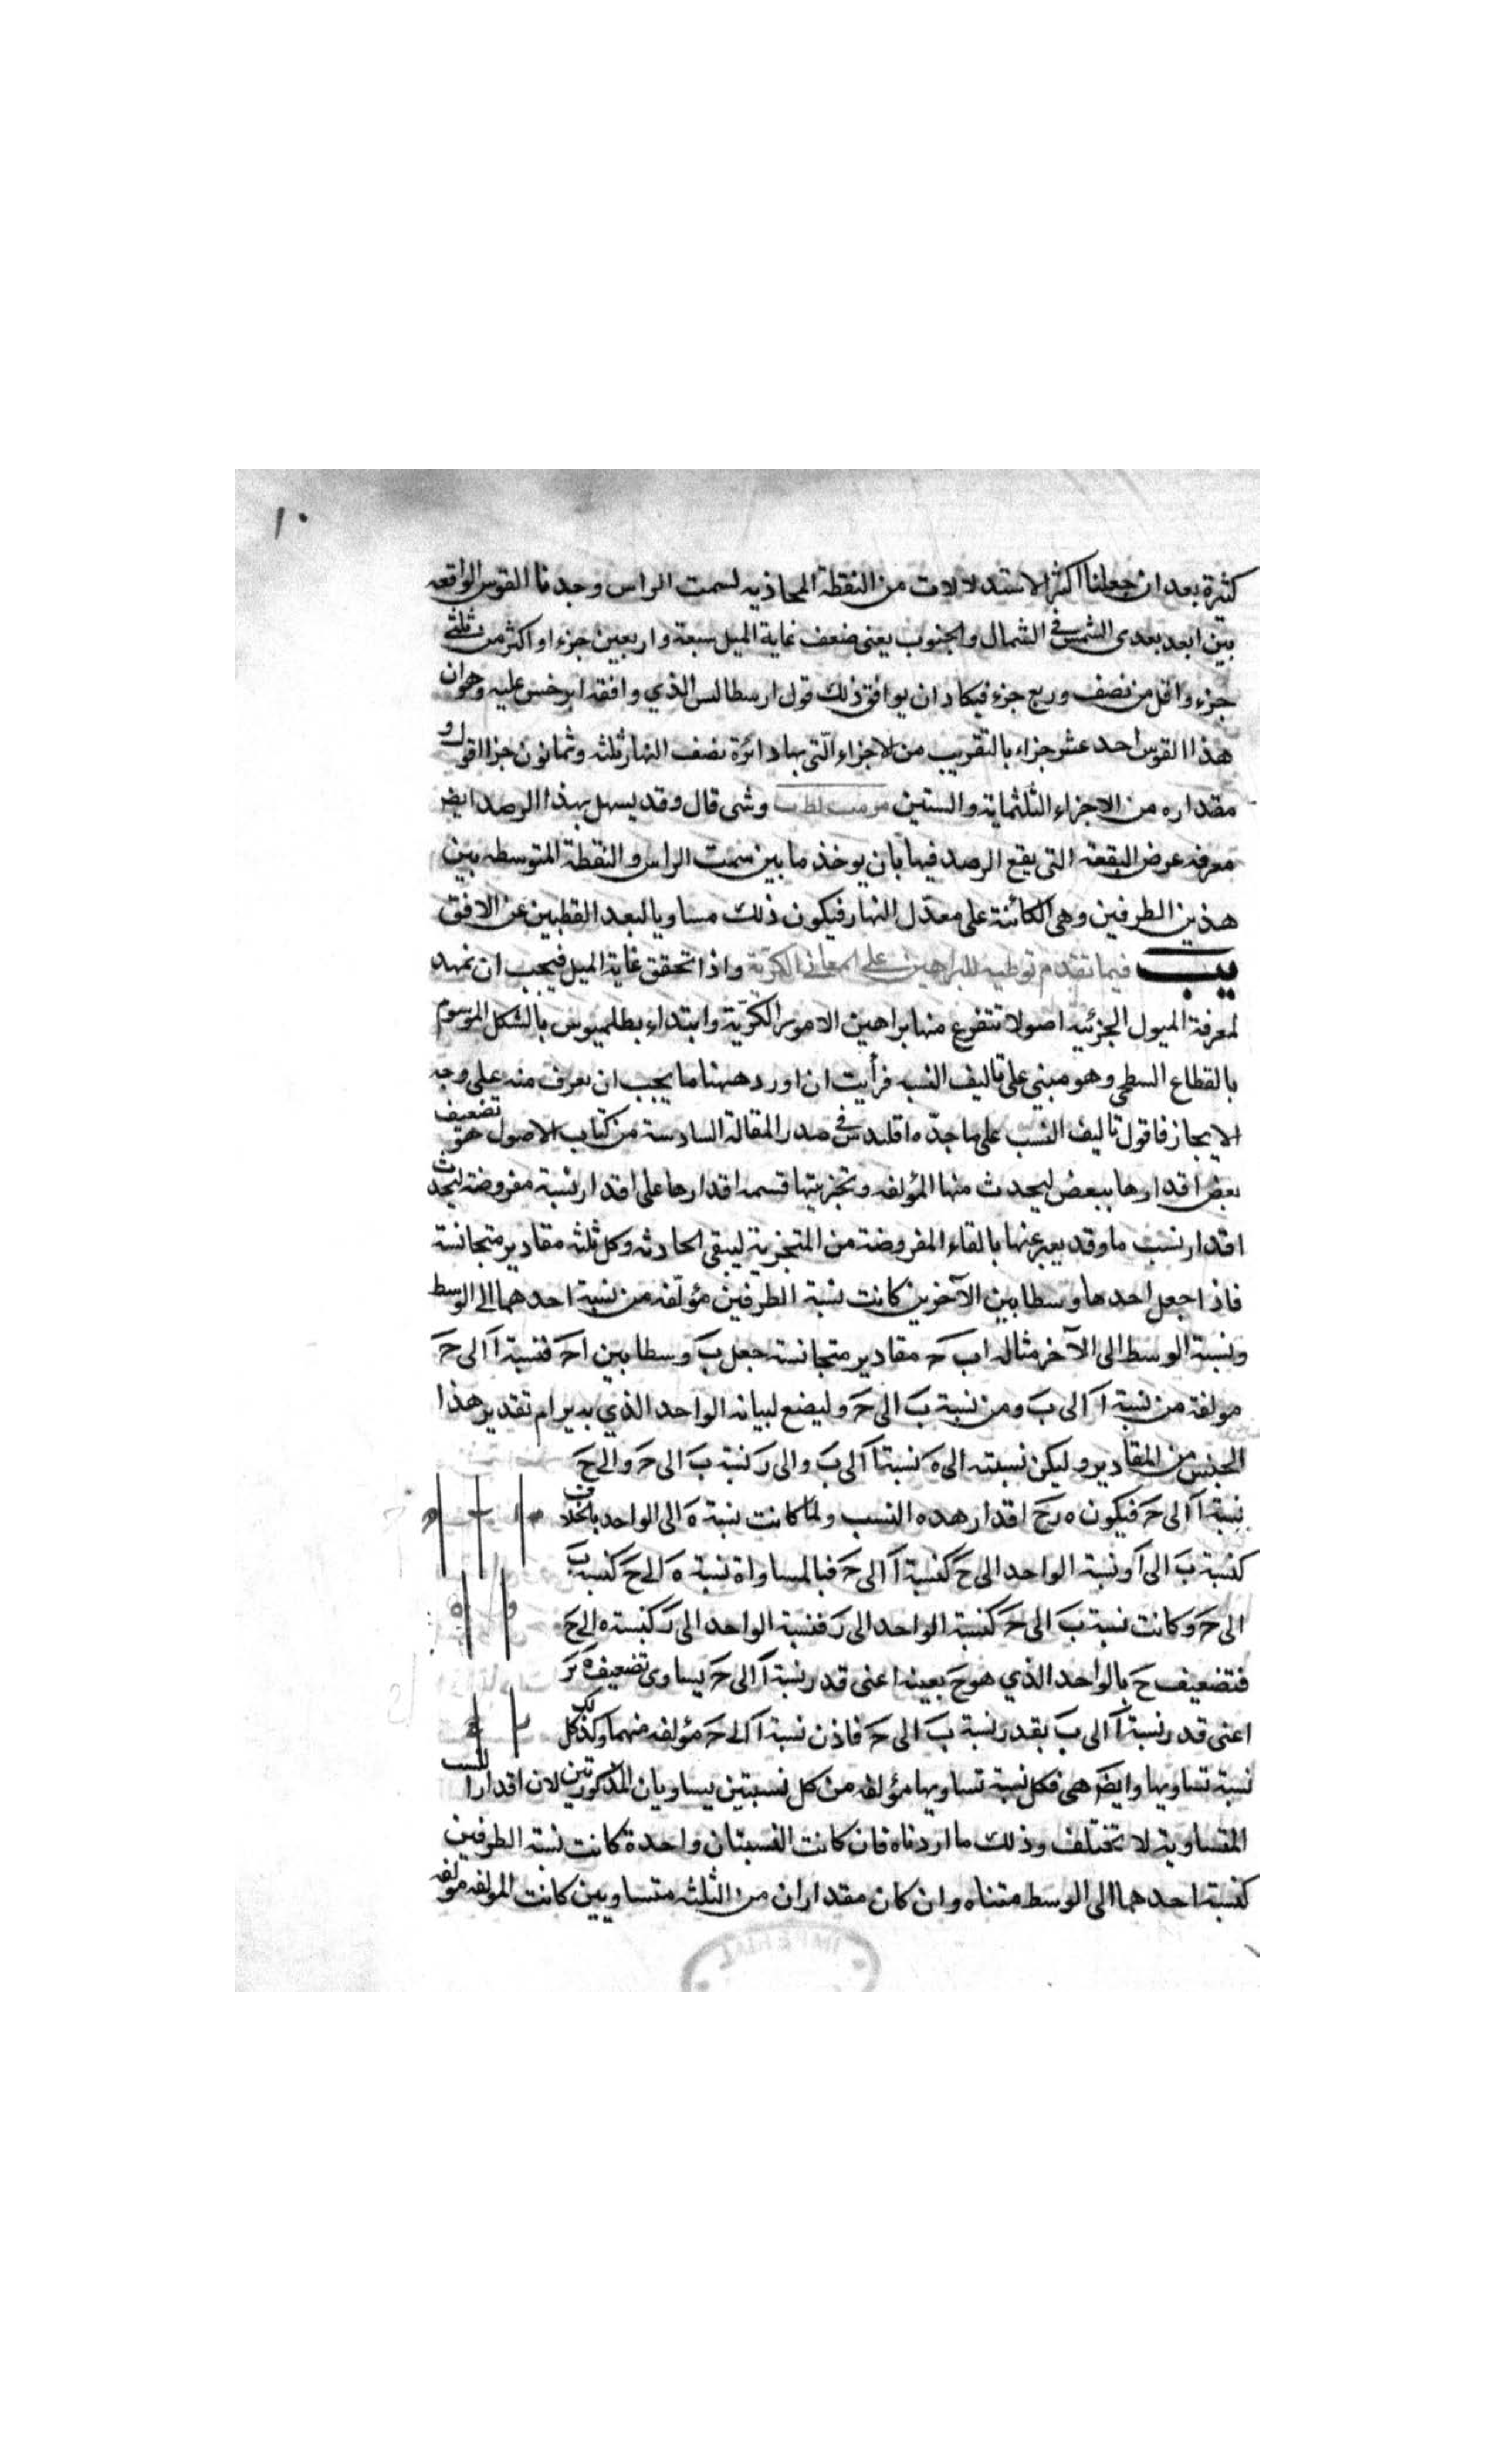 ١٠
كثيرة بعد ان جعلنا اكثر الاستدلالات من النقطة المحاذيه لسمت الراس وجدنا القوس الواقعه
بين ابعد بعدى الشمس في الشمال والجنوب يعنى ضعف غاية الميل سبعة واربعين جزءا واكثر من ثلثى
جزء واقل من نصف وربع جزء فيكاد ان يوافق ذلك قول ارسطالس الذي وافقه ابرخس عليه وهو ان
هذا القوس احد عشر جزاء بالتقريب من الاجزاء التى بها دائرة نصف النهار ثلثه وثمانون جزا اقول و
مقداره من الاجزاء الثلثماية والستين وشى قال وقد يسهل بهذا الرصد ايض
معرفه عرض البقعة التى يقع الرصد فيها بان يوخذ ما بين سمت الراس والنقطة المتوسطه بين
هذين الطرفين وهى الكائنة على معدّل النهار فيكون ذلك مساويا لبعد القطبين عن الافق
يب فيما تقدم توطيه للبراهين على المعانى الكريّة واذا تحقق غاية الميل فيجب ان نمهد
لمعرفة الميول الجزئيه اصولا تتفرع منها براهين الامور الكريّة وابتداء بطلميوس بالشكل الموسوم
بالقطاع السطحى وهو مبنى على تاليف النسبه فرأيت ان اورد ههنا ما يجب ان يعرف منه على وجه
الايجاز فاقول تاليف النسب على ما حدّه اقليدس في صدر المقالة السادسة من كتاب الاصول هو تضعيف
بعض اقدارها ببعض ليحدث منها المؤلفه وتجزيتها قسمه اقدارها على اقدار نسبة مفروضة ليحدث
اقدار نسب ما وقد يعبر عنها بالقاء المفروضة من المتجزية ليبقى الحادثه وكل ثلثه مقادير متجانسة
فاذا جعل احدها وسطا بين الآخرين كانت نسبة الطرفين مؤلّفه من نسبة احدهما الى الوسط
ونسبة الوسط الى الآخر مثاله اب حَ مقادير متجانسة جعل بَ وسطا بين احَ فنسبة اَ الى حَ
مولفة من نسبة اَ الى بَ ومن نسبة بَ الى حَ وليضع لبيانه الواحد الذي به يرام تقدير هذا
الجنس من المقادير وليكن نسبته الى هَ نسبة اَ الى بَ والى رَ نسبة بَ الى حَ والى حَ
نسبة اَ الى حَ فيكون ه رحَ اقدار هذه النسب ولما كانت نسبة هَ الى الواحد بالخلاف
كنسبة بَ الى اَ ونسبة الواحد الى حَ كنسبة اَ الى حَ فبالمساواة نسبة هَ الى حَ كنسبة بَ
الى حَ وكانت نسبة بَ الى حَ كنسبة الواحد الى رَ فنسبة الواحد الى رَ كنسبة ه الى حَ
فتضعيف حَ بالواحد الذي هو حَ بعينه اعنى قدر نسبة اَ الى حَ يساوى تضعيف هَ بَر
اعنى قدر نسبة اَ الى بَ بقدر نسبة بَ الى حَ فاذن نسبة اَ الى حَ مؤلفه منهما وكذلك كل
نسبة تساويها وايض هى فكل نسبة تساويها مؤلفه من كل نسبتين يساويان المذكورتين لان اقدار النسب
المتساوية لا تختلف وذلك ما اردناه فان كانت النسبتان واحدة كانت نسبة الطرفين
كنسبة احدهما الى الوسط مثناه وان كان مقداران من الثلثه متساويين كانت المولفه مولفه
IMPERIAL